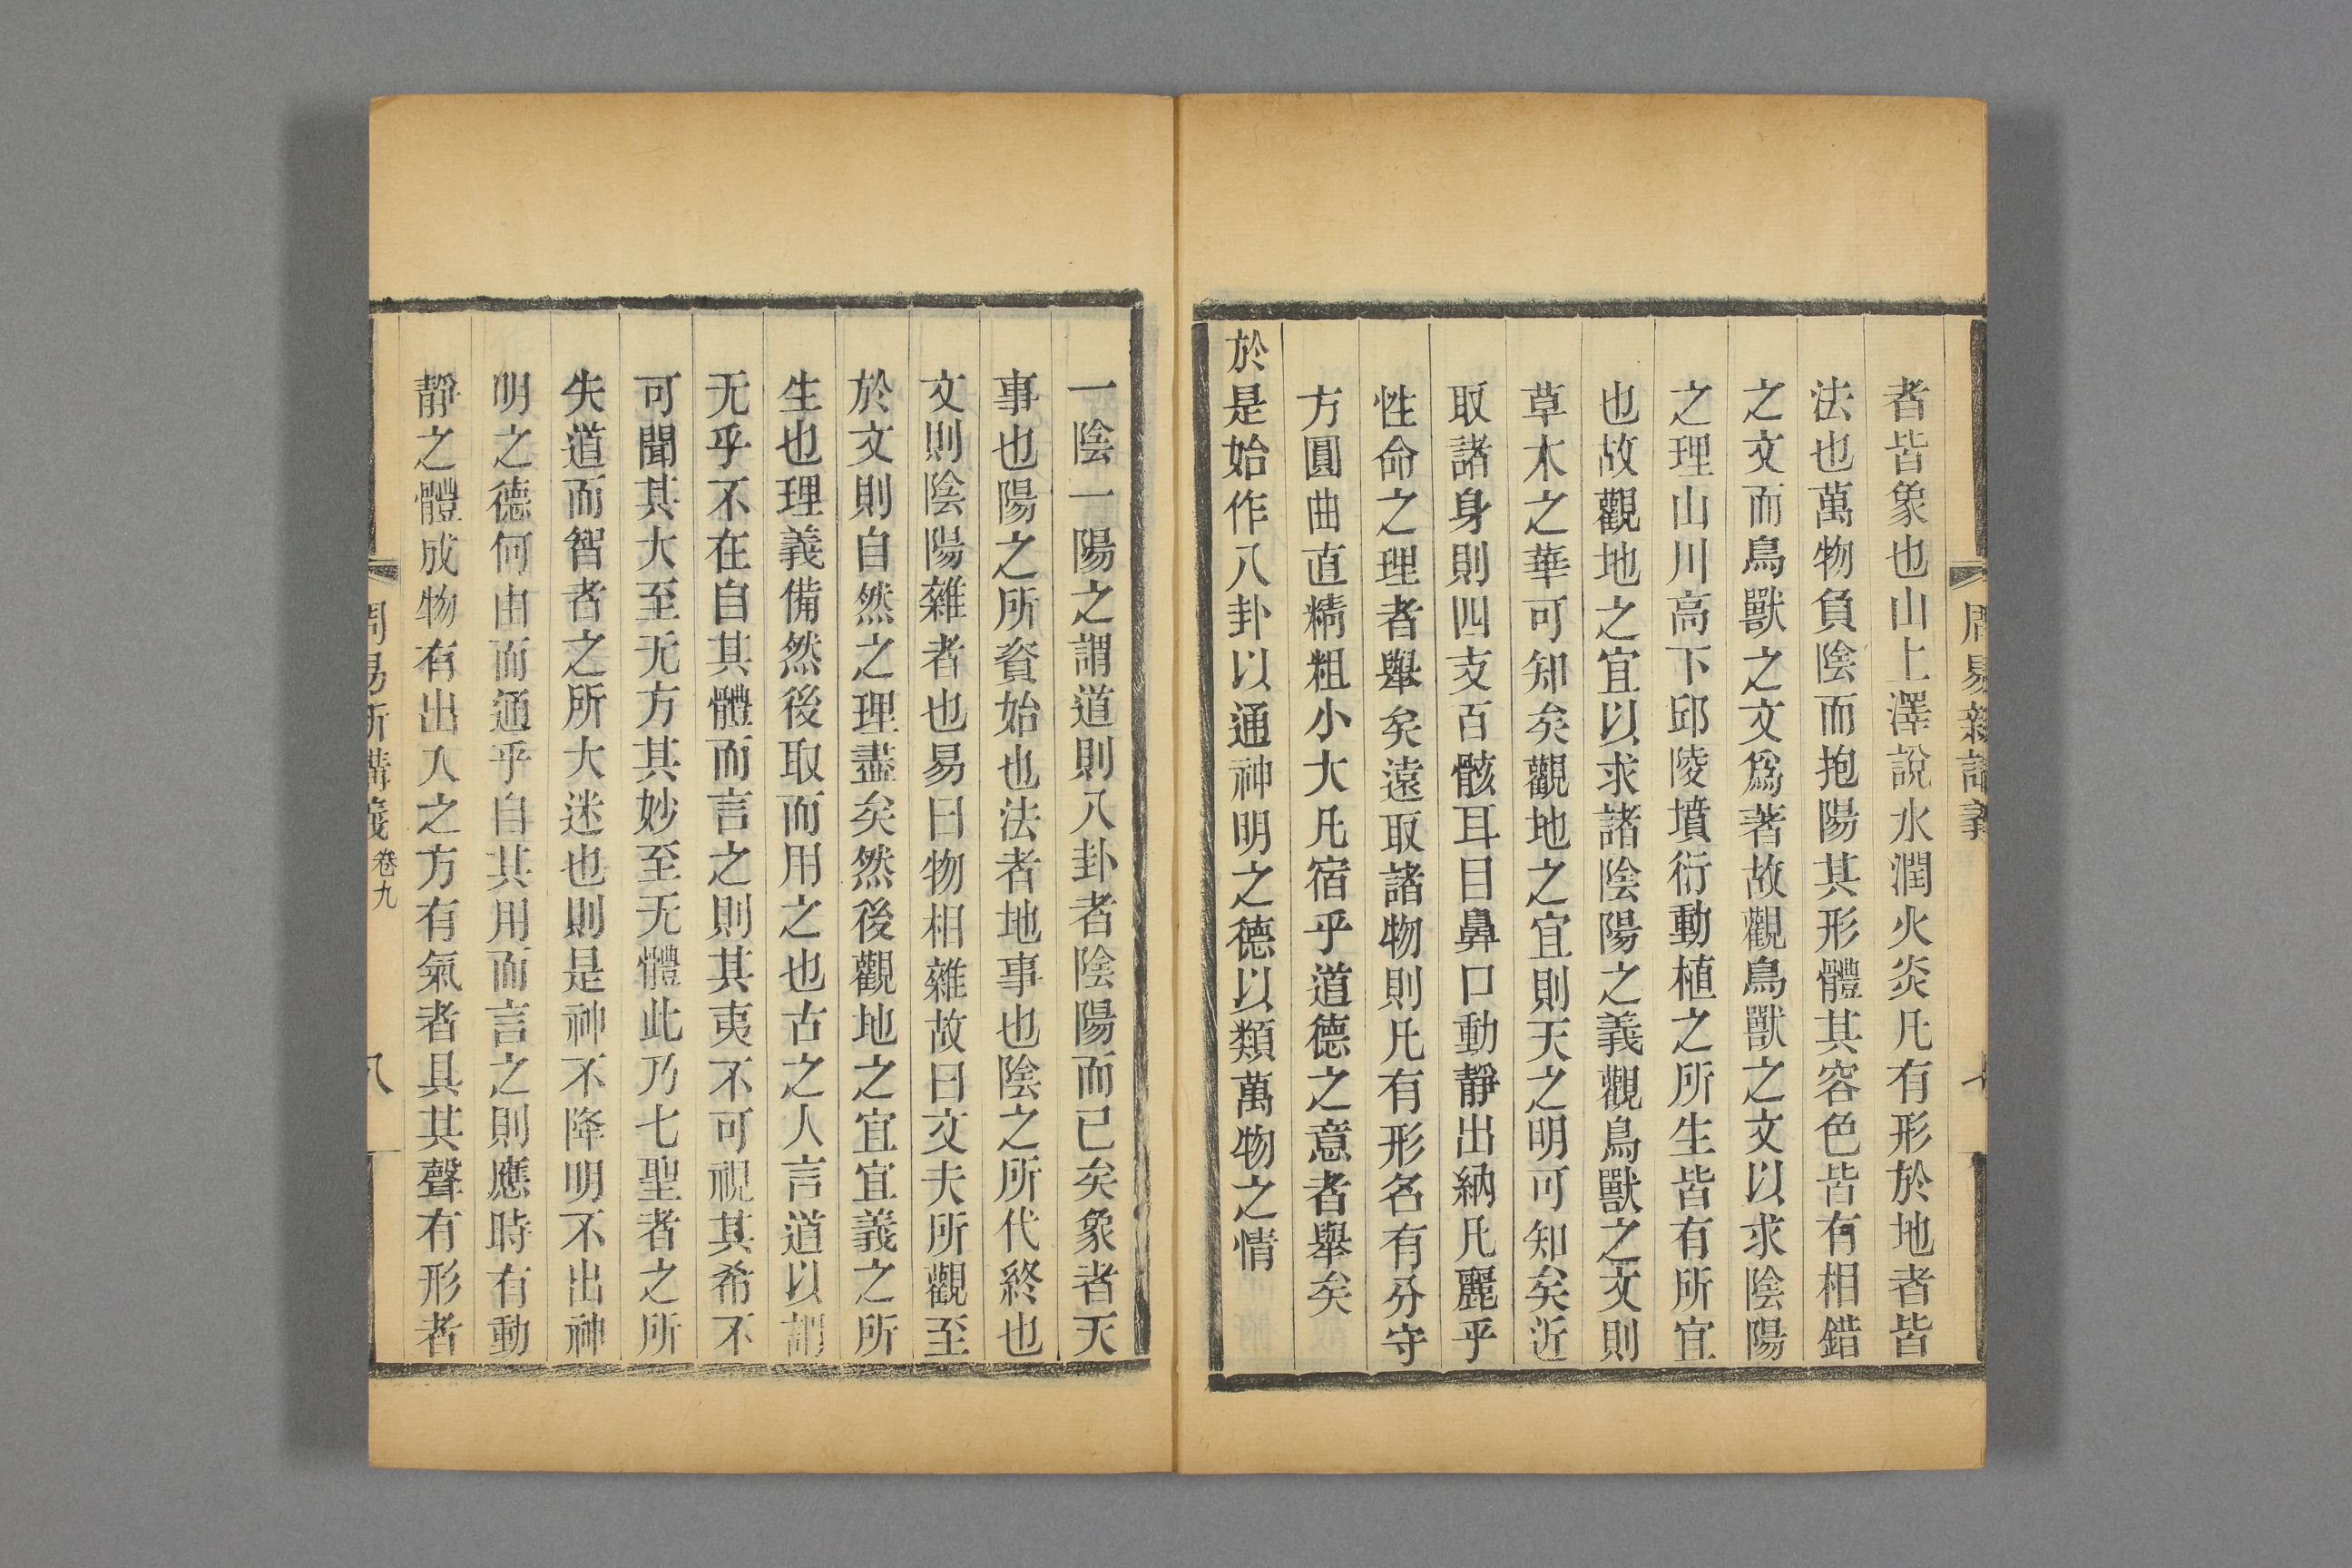 者皆象也山上澤說水潤火炎凡有形於地者皆
法也萬物負陰而抱陽其形體其容色皆有相錯
之文而鳥獸之文爲著故觀鳥獸之文以求陰陽
之理山川高下邱陵墳衍動植之所生皆有所宜
也故觀地之宜以求諸陰陽之義觀鳥獸之文則
草木之華可知矣觀地之宜則天之明可知矣近
取諸身則四支百骸耳目鼻口動靜出納凡麗乎
性命之理者舉矣遠取諸物則凡有形名有分守
方圓曲直精粗小大凡宿乎道德之意者舉矣
於是始作八卦以通神明之德以類萬物之情
一陰一陽之謂道則八卦者陰陽而已矣象者天
事也陽之所資始也法者地事也陰之所代終也
文則陰陽雜者也易曰物相雜故曰文夫所觀至
於文則自然之理盡矣然後觀地之宜宜義之所
生也理義備然後取而用之也古之人言道以謂
无乎不在自其體而言之則其夷不可視其希不
可聞其大至无方其妙至无體此乃七聖者之所
失道而智者之所大迷也則是神不降明不出神
明之德何由而通乎自其用而言之則應時有動
靜之體成物有出入之方有氣者具其聲有形者
周易新講義 卷九 八